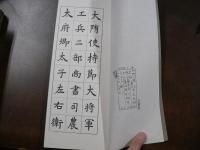 大隋使持節大將軍
工兵二部尚書司農
太府卿太子左右衛